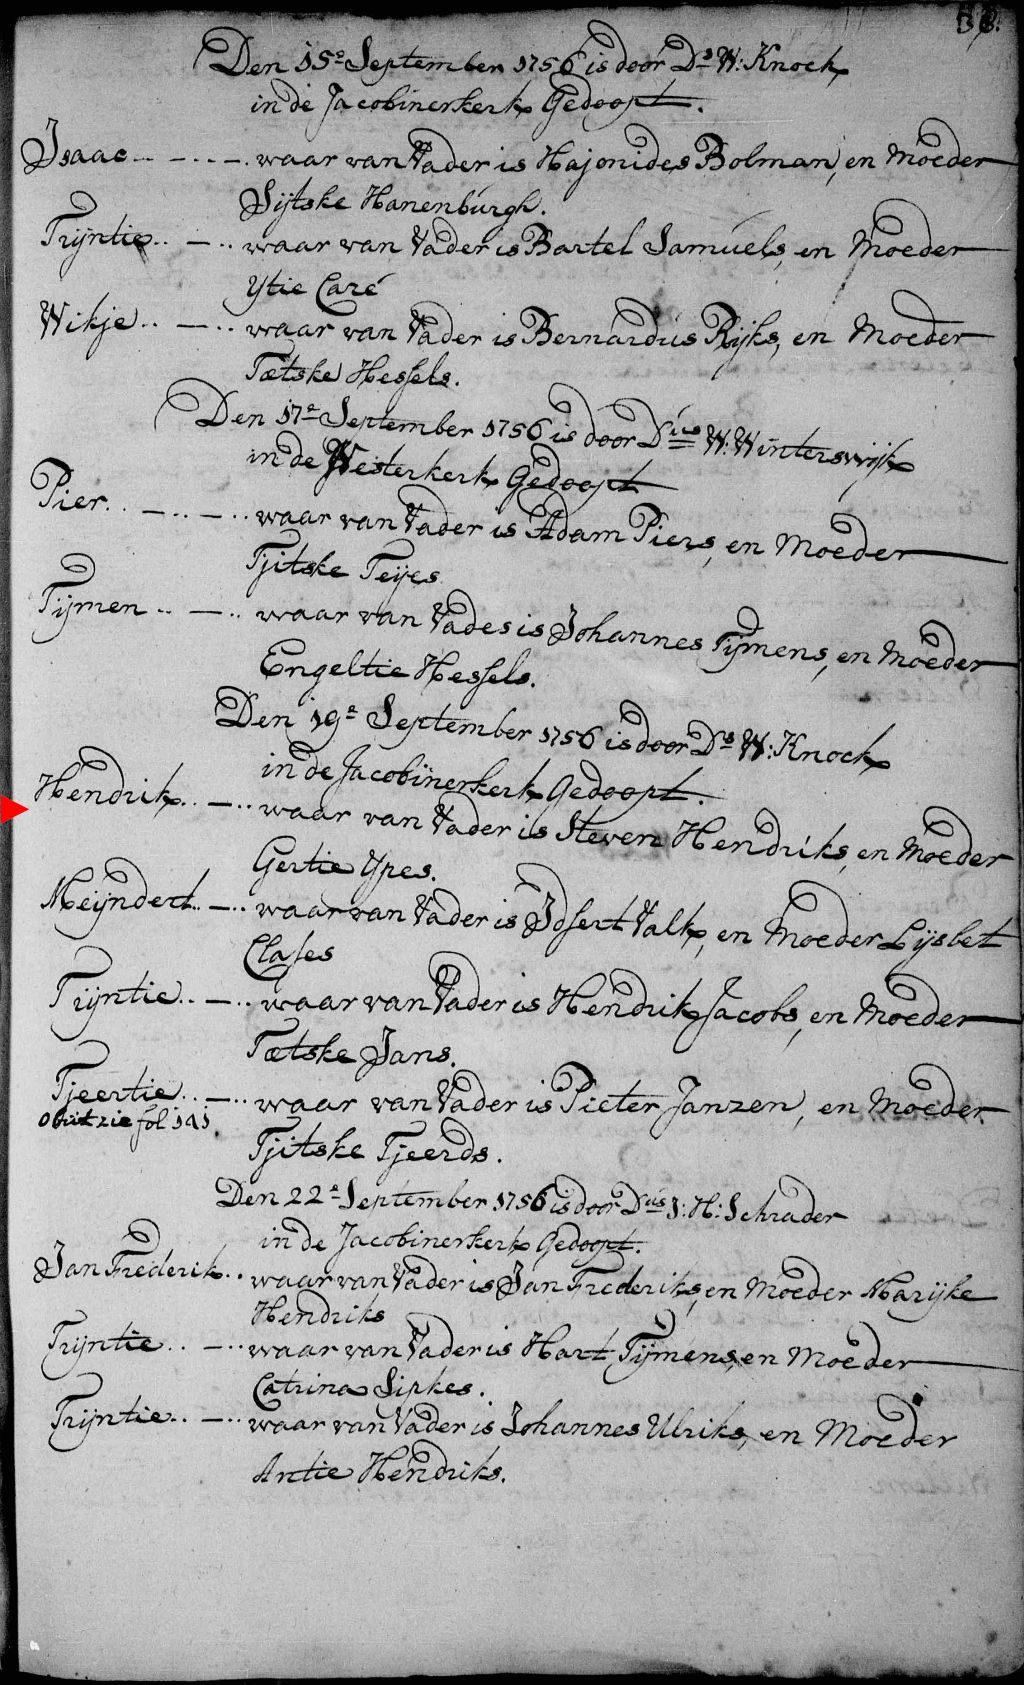 Den 15e September 1756 is door Ds W: Knock
in de Jacobinerkerk Gedoopt.
Isaac - - . . - . waar van Vader is Hajonides Bolman, en Moeder
Sijtske Hanenburgh.
Trijntie . . - . . waar van Vader is Bartel Samuels, en Moeder
Ytie Caré
Wikje . . - . . waar van Vader is Bernardus Rijks, en Moeder
Tætske Hessels.
Den 17e September 1756 is door Dius W: Winterswijk
in de Westerkerk Gedoopt
Pier . . - . . - . . waar van Vader is Adam Piers, en Moeder
Tjitske Teijes
Tijmen . . - . . waar van Vades is Johannes Tijmens, en Moeder
Engeltie Hessels.
Den 19e September 1756 is door Ds W: Knock
in de Jacobinerkerk Gedoopt.
Hendrik . . - . . waar van Vader is Steven Hendriks, en Moeder
Gertie Ypes.
Meijndert . . - . . waar van Vader is Idsert Valk, en Moeder Lijsbet
Clases
Trijntie . . - . . waar van Vader is Hendrik Jacobs, en Moeder
Tætske Jans.
Tjeertie . . - . . waar van Vader is Pieter Janzen, en Moeder
obiit zie fol 141
Tjitske Tjeerds.
Den 22e September 1756 is door Dius J: H: Schrader
in de Jacobinerkerk Gedoopt.
Jan Frederik . . waar van Vader is Jan Frederiks, en Moeder Marijke
Hendriks
Trijntie . . - . . waar van Vader is Hart Tijmens, en Moeder
Catrina Sipkes.
Trijntie . . - . . waar van Vader is Johannes Ulriks, en Moeder
Antie Hendriks.